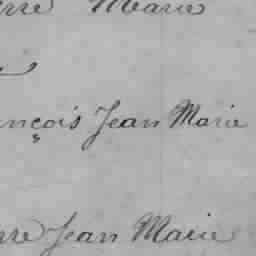 rre Marie
nçois Jean Marie
rre Jean Marie